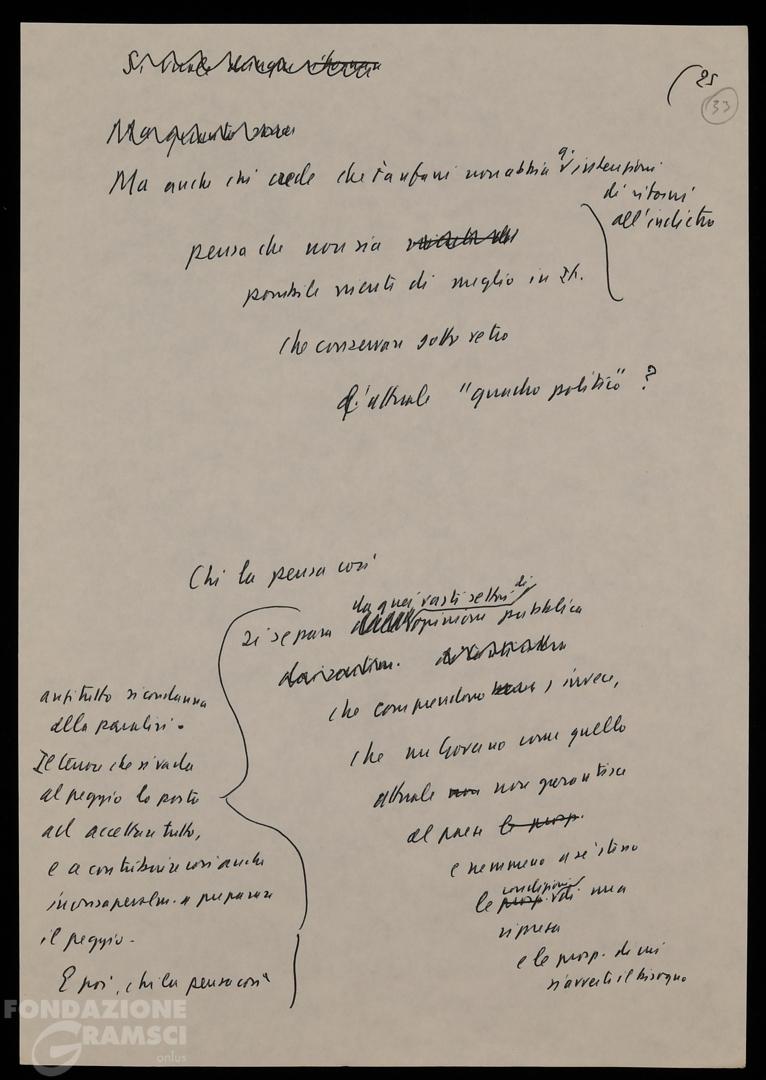 25
33
Ma anche chi crede che Fanfani non abbia q. intenzioni
di ritorni
all'indietro
pensa che non sia
possibile niente di meglio in It.
che conservare sotto vetro
l'attuale "quadro politico" ?
Chi la pensa così
si separa da quei vasti settori di
opinione pubblica
che comprendono, invece,
che un Governo come quello
attuale non garantisce
al paese
e nemmeno a sé stesso
le condizioni di una
ripresa
e le prosp. di cui
s'avverte il bisogno
anzitutto si condanna
alla paralisi.
Il timore che si vada
al peggio lo porta
ad accettare tutto,
e a contribuire così anche
inconsapevolm. a preparare
il peggio.
E poi, chi la pensa così
FONDAZIONE
GRAMSCI
onlus